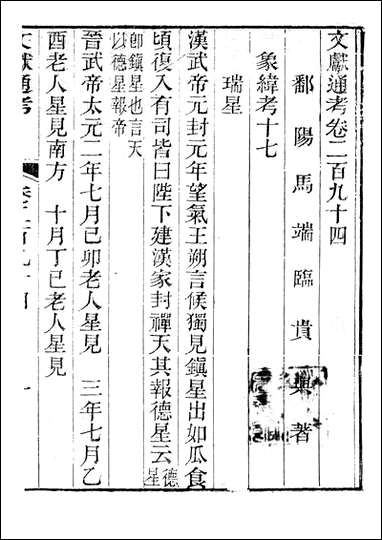 文獻通考卷二百九十四
鄱陽馬端臨貴與著
象緯考十七
瑞星
漢武帝元封元年望氣王朔言候獨見鎭星出如瓜食
頃復入有司皆曰陛下建漢家封禪天其報德星云德星
卽鎭星也言天
以德星報帝
晉武帝太元二年七月己卯老人星見 三年七月乙
酉老人星見南方 十月丁巳老人星見
文獻通考
卷二百九十四
一